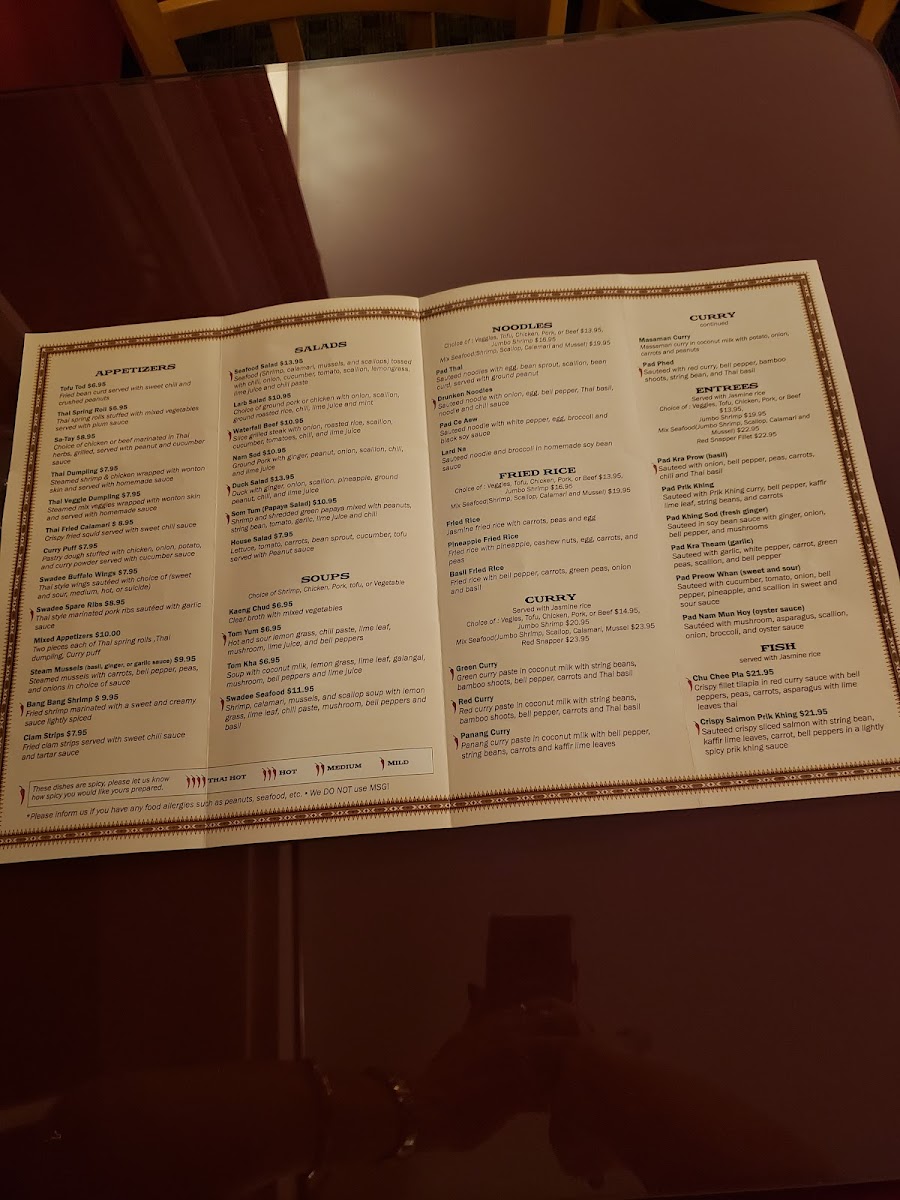 APPETIZERS
Tofu Tod $6.95
Fried bean curd served with sweet chili and
crushed peanuts
Thai Spring Roll $6.95
Thai spring rolls stuffed with mixed vegetables
served with plum sauce
Sa-Tay $8.95
Choice of chicken or beef marinated in Thai
herbs, grilled, served with peanut and cucumber
sauce
Thai Dumpling $7.95
Steamed shrimp & chicken wrapped with wonton
skin and served with homemade sauce
Thai Veggie Dumpling $7.95
Steamed mix veggies wrapped with wonton skin
and served with homemade sauce
Thai Fried Calamari $ 8.95
Crispy fried squid served with sweet chili sauce
Curry Puff $7.95
Pastry dough stuffed with chicken, onion, potato,
and curry powder served with cucumber sauce
Swadee Buffalo Wings $7.95
Thai style wings sautéed with choice of (sweet
and sour, medium, hot, or suicide)
Swadee Spare Ribs $8.95
Thai style marinated pork ribs sautéed with garlic
sauce
Mixed Appetizers $10.00
Two pieces each of Thai spring rolls ,Thai
dumpling, Curry puff
Steam Mussels (basil, ginger, or garlic sauce) $9.95
Steamed mussels with carrots, bell pepper, peas,
and onions in choice of sauce
Bang Bang Shrimp $ 9.95
Fried shrimp marinated with a sweet and creamy
sauce lightly spiced
Clam Strips $7.95
Fried clam strips served with sweet chili sauce
and tartar sauce
SALADS
Seafood Salad $13.95
Seafood (Shrimp, calamari, mussels, and scallops) tossed
with chili, onion, cucumber, tomato, scallion, lemongrass,
lime juice and chili paste
Larb Salad $10.95
Choice of ground pork or chicken with onion, scallion,
ground roasted rice, chili, lime juice and mint
Waterfall Beef $10.95
Slice grilled steak with onion, roasted rice, scallion,
cucumber, tomatoes, chili, and lime juice
Nam Sod $10.95
Ground Pork with ginger, peanut, onion, scallion, chili,
and lime juice
Duck Salad $13.95
Duck with ginger, onion, scallion, pineapple, ground
peanut, chili, and lime juice
Som Tum (Papaya Salad) $10.95
Shrimp and shredded green papaya mixed with peanuts,
string bean, tomato, garlic, lime juice and chili
House Salad $7.95
Lettuce, tomato, carrots, bean sprout, cucumber, tofu
served with Peanut sauce
SOUPS
Choice of Shrimp, Chicken, Pork, tofu, or Vegetable
Kaeng Chud $6.95
Clear broth with mixed vegetables
Tom Yum $6.95
Hot and sour lemon grass, chili paste, lime leaf,
mushroom, lime juice, and bell peppers
Tom Kha $6.95
Soup with coconut milk, lemon grass, lime leaf, galangal,
mushroom, bell peppers and lime juice
Swadee Seafood $11.95
Shrimp, calamari, mussels, and scallop soup with lemon
grass, lime leaf, chili paste, mushroom, bell peppers and
basil
These dishes are spicy, please let us know
how spicy you would like yours prepared.
THAI HOT
HOT
MEDIUM
MILD
*Please inform us if you have any food allergies such as peanuts, seafood, etc. • We DO NOT use MSG!
NOODLES
Choice of : Veggies, Tofu, Chicken, Pork, or Beef $13.95,
Jumbo Shrimp $16.95
Mix Seafood(Shrimp, Scallop, Calamari and Mussel) $19.95
Pad Thai
Sauteed noodles with egg, bean sprout, scallion, bean
curd, served with ground peanut
Drunken Noodles
Sauteed noodle with onion, egg, bell pepper, Thai basil,
noodle and chili sauce
Pad Ce Aew
Sauteed noodle with white pepper, egg, broccoli and
black soy sauce
Lard Na
Sauteed noodle and broccoli in homemade soy bean
sauce
FRIED RICE
Choice of : Veggies, Tofu, Chicken, Pork, or Beef $13.95,
Jumbo Shrimp $16.95
Mix Seafood(Shrimp, Scallop, Calamari and Mussel) $19.95
Fried Rice
Jasmine fried rice with carrots, peas and egg
Pineapple Fried Rice
Fried rice with pineapple, cashew nuts, egg, carrots, and
peas
Basil Fried Rice
Fried rice with bell pepper, carrots, green peas, onion
and basil
CURRY
Served with Jasmine rice
Choice of : Vegies, Tofu, Chicken, Pork, or Beef $14.95,
Jumbo Shrimp $20.95
Mix Seafood(Jumbo Shrimp, Scallop, Calamari, Mussel $23.95
Red Snapper $23.95
Green Curry
Green curry paste in coconut milk with string beans,
bamboo shoots, bell pepper, carrots and Thai basil
Red Curry
Red curry paste in coconut milk with string beans,
bamboo shoots, bell pepper, carrots and Thai basil
Panang Curry
Panang curry paste in coconut milk with bell pepper,
string beans, carrots and kaffir lime leaves
CURRY
continued
Masaman Curry
Massaman curry in coconut milk with potato, onion,
carrots and peanuts
Pad Phed
Sauteed with red curry, bell pepper, bamboo
shoots, string bean, and Thai basil
ENTREES
Served with Jasmine rice
Choice of : Veggies, Tofu, Chicken, Pork, or Beef
$13.95,
Jumbo Shrimp $19.95
Mix Seafood(Jumbo Shrimp, Scallop, Calamari and
Mussel) $22.95
Red Snapper Fillet $22.95
Pad Kra Prow (basil)
Sauteed with onion, bell pepper, peas, carrots,
chili and Thai basil
Pad Prik Khing
Sauteed with Prik Khing curry, bell pepper, kaffir
lime leaf, string beans, and carrots
Pad Khing Sod (fresh ginger)
Sauteed in soy bean sauce with ginger, onion,
bell pepper, and mushrooms
Pad Kra Theam (garlic)
Sauteed with garlic, white pepper, carrot, green
peas, scallion, and bell pepper
Pad Preow Whan (sweet and sour)
Sauteed with cucumber, tomato, onion, bell
pepper, pineapple, and scallion in sweet and
sour sauce
Pad Nam Mun Hoy (oyster sauce)
Sautéed with mushroom, asparagus, scallion,
onion, broccoli, and oyster sauce
FISH
served with Jasmine rice
Chu Chee Pla $21.95
Crispy fillet tilapia in red curry sauce with bell
peppers, peas, carrots, asparagus with lime
leaves thai
Crispy Salmon Prik Khing $21.95
Sauteed crispy sliced salmon with string bean,
kaffir lime leaves, carrot, bell peppers in a lightly
spicy prik khing sauce